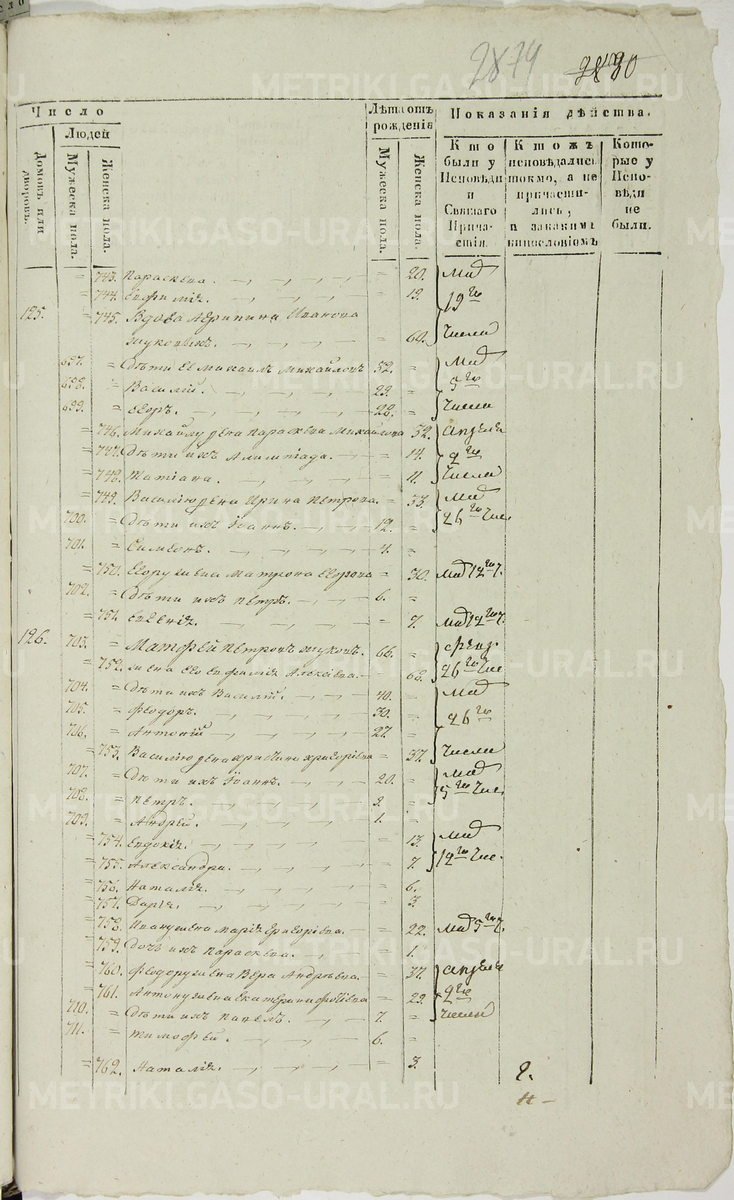 2879 2880
Число
Людей
Домовъ или дворовъ.
Мужеска пола.
Женска пола.
Лѣта отъ рожденія
Мужеска пола.
Женска пола.
Показанія дѣйства.
Кто были у Исповѣди и Святаго Причастія
Ктожъ исповѣдались токмо, а не причастились, и за какимъ винословіемъ
Которые у Исповѣди не были.
= 743. Параскева. = 20. Маія
= 744. Евфимія. = 19. 19го
125. = 745. Вдова Агрипина Иванова
Жуковыхъ = 60. Числа
697. = Дѣти ея Михаилъ Михайловъ 32. = Маія
698. = Василій. 29. = 5го
699. = Егоръ. 28. = Числа
= 746. Михайлу жена Параскева Михайлова 32. Апрѣля
= 747. Дѣти ихъ Алимпіада. = 14. 9го
= 748. Татіана. = 11. Числа
= 749. Василію жена Ирина Петрова = 33. Маія
700. = Дѣти ихъ Іоаннъ. 12. = 26го Чис.
701. = Симеонъ. 4. =
= 750. Егору жена Матрона Егорова = 30. Маія 12го ч.
702. = Дѣти ихъ Петръ. 6. =
= 751. Евгенія. = 7. Маія 12го ч.
126. 703. = Матфей Петровъ Жуковъ. 66. =
= 752. жена его Евфимія Алексѣева. = 68. 26го Чис
704. = Дѣти ихъ Василій. 40. = Маія
705. = Феодоръ. 30. = 26го
706. = Антоній 27. =
= 753. Василію жена Христина Григорьева = 37. Числа
707. = Дѣти ихъ Іоаннъ. 20. = Маія
708. = Петръ. = 5го Чис.
709. = Андрей. 1. =
= 754. Евдокія. = 13. Маія
= 755. Александра. = 7. 12го Чис.
= 756. Наталія. = 6.
= 757. Дарія. = 3.
= 758. Ивану жена Марія Григорьева. = 22. Маія 5го ч.
= 759. Дочь ихъ Параскева. = 1.
= 760. Феодору жена Вера Андрѣева. = 32. Апрѣля
= 761. Антону жена Екатерина = 29. 9го
710. = Дѣти ихъ Павелъ. 7. = Числа
711. = Тимофей. 6. =
= 762. Наталія. = 3.
METRIKI.GASO-URAL.RU